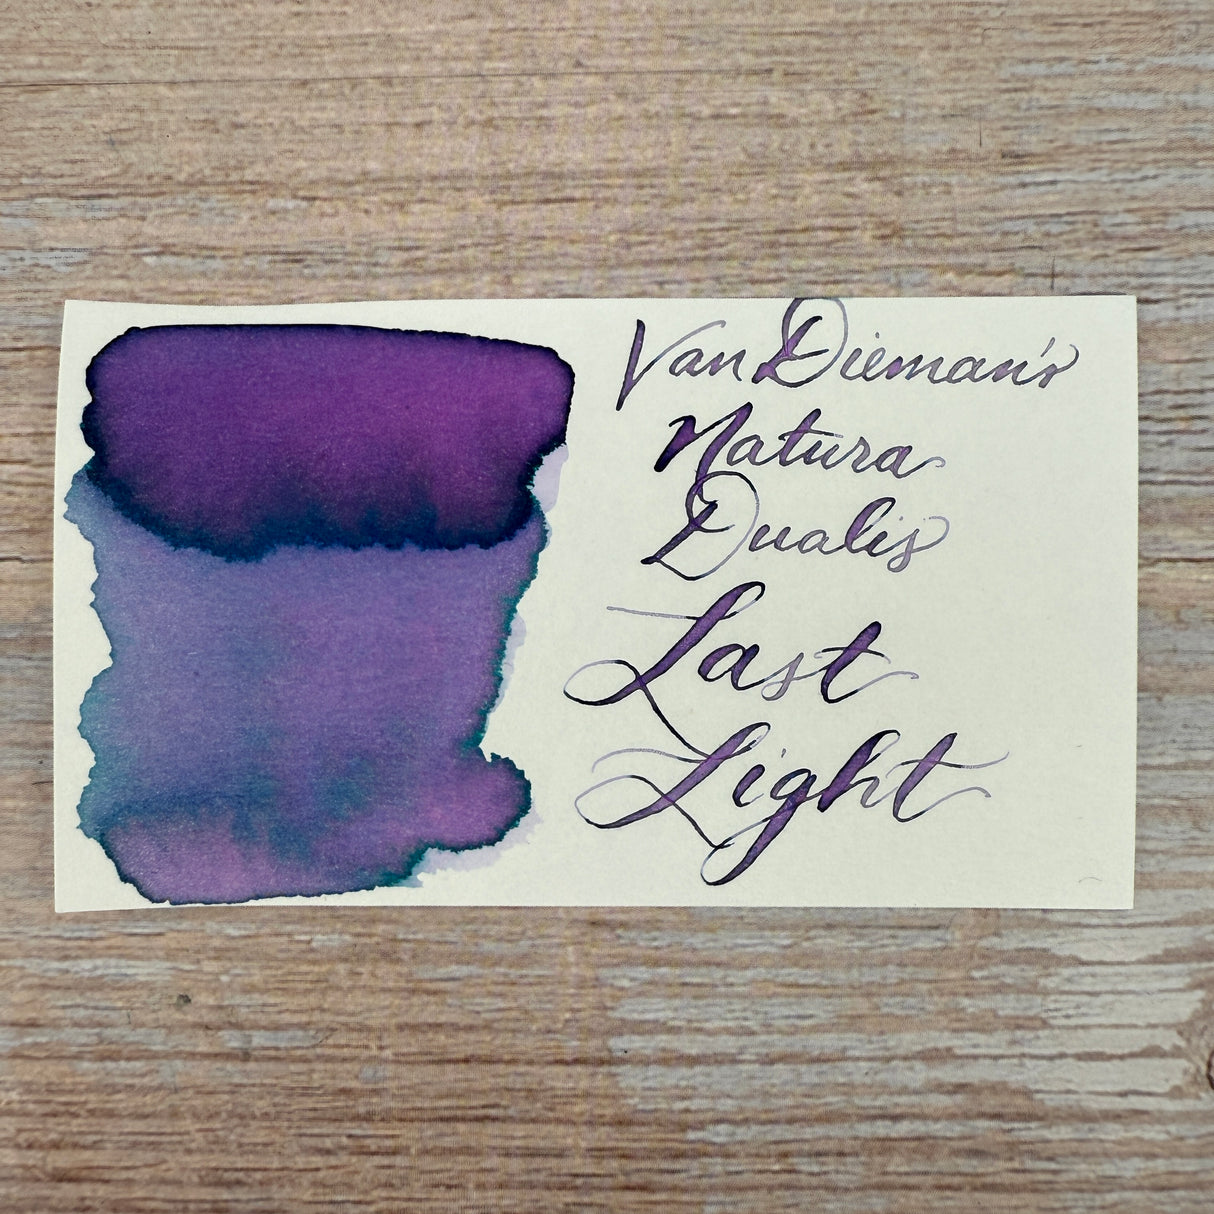 Van Dieman's
Natura
Dualis
Last
Light